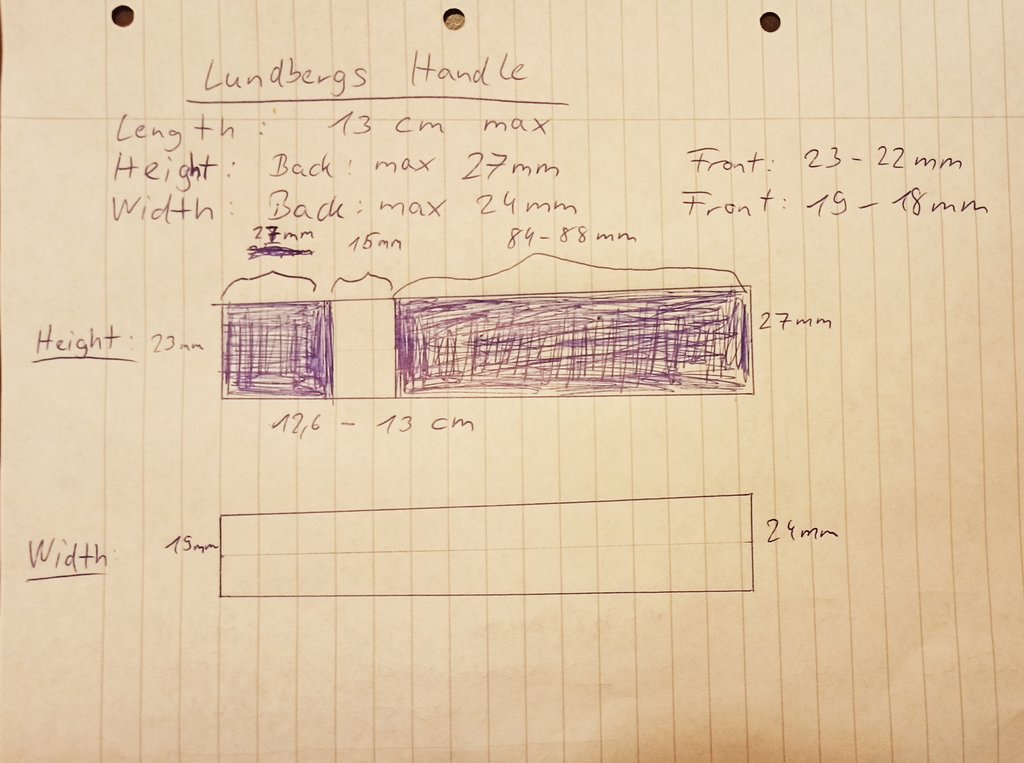 Lundbergs Handle
Length: 13 cm max
Height: Back: max 27mm Front: 23-22mm
Width: Back: max 24mm Front: 19-18mm
27mm 15mm 84-88mm
Height: 23mm 27mm
12,6 - 13 cm
Width: 19mm 24mm